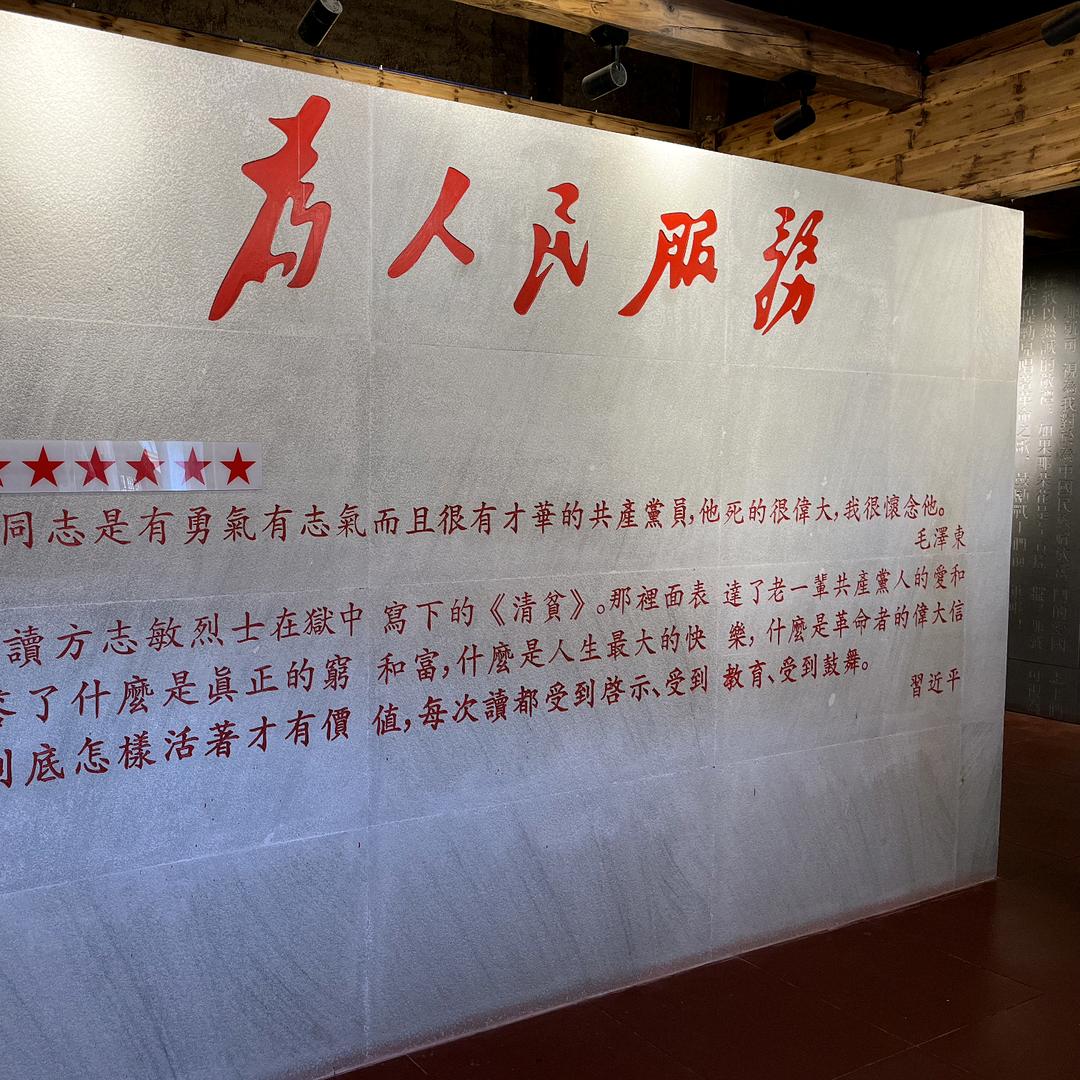 為人民服務
同志是有勇氣有志氣而且很有才華的共產黨員,他死的很偉大,我很懷念他。
毛澤東
讀方志敏烈士在獄中寫下的《清貧》。那裡面表達了老一輩共產黨人的愛和
了什麼是眞正的窮和富,什麼是人生最大的快樂,什麼是革命者的偉大信
到底怎樣活著才有價值,每次讀都受到啓示、受到教育、受到鼓舞。
習近平